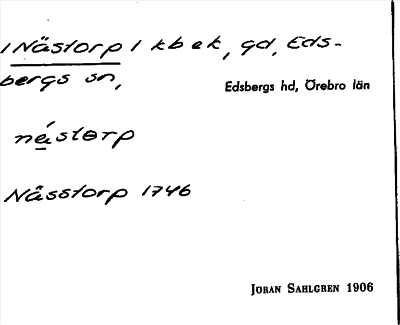 /Nästorp/ kbek, gd, Eds-
bergs sn,
Edsbergs hd, Örebro län
nästɵrp
Nässtorp 1746
Jöran Sahlgren 1906